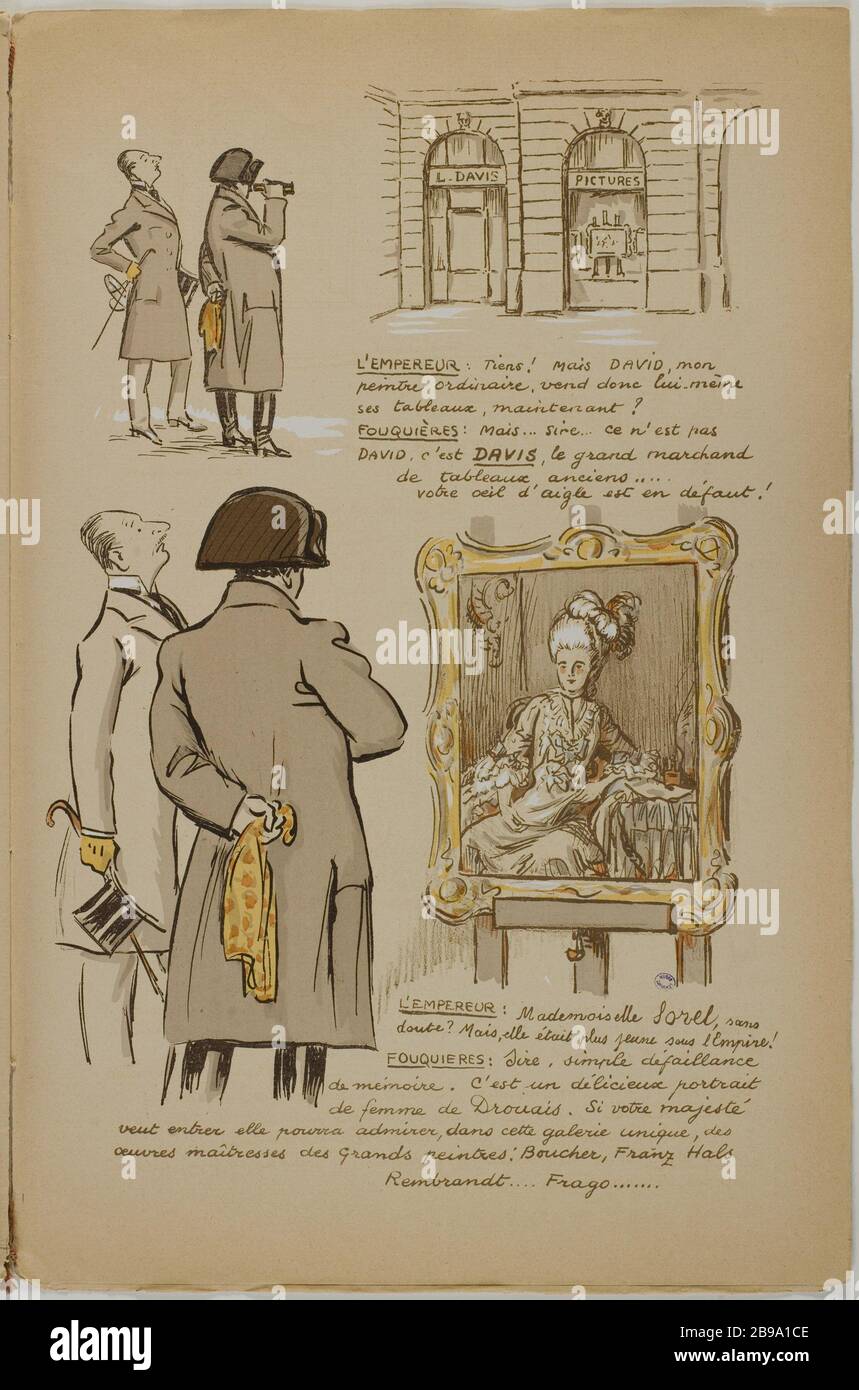 L. DAVIS
PICTURES
L'EMPEREUR : Tiens! Mais DAVID, mon
peintre ordinaire, vend donc lui-même
ses tableaux, maintenant ?
FOUQUIÈRES : Mais... Sire... ce n'est pas
DAVID, c'est DAVIS, le grand marchand
de tableaux anciens.....
votre oeil d'aigle est en défaut!
L'EMPEREUR : Mademoiselle Sorel, sans
doute? Mais, elle était plus jeune sous l'Empire!
FOUQUIERES : Sire, simple défaillance
de mémoire. C'est un délicieux portrait
de femme de Drouais. Si votre majesté
veut entrer elle pourra admirer, dans cette galerie unique, des
œuvres maîtresses des Grands peintres: Boucher, Franz Hals
Rembrandt.... Frago.......
alamy
Image ID: 2B9A1CE
www.alamy.com